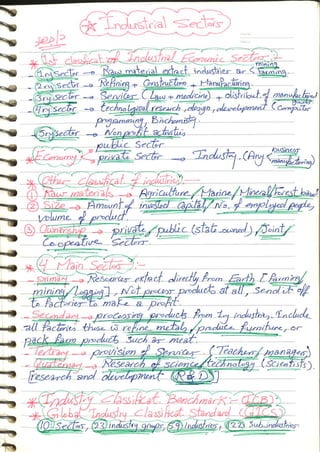 * Industrial Sectors
* 1st classificat. of Industrial Economic Sectors :-
1ry sector → Raw material extract. industries as mining farming.
2ry sector → Refining + Construction + Manufacturing
3ry sector → Services (Law + medicine) + distribut. of manufactural goods
4ry sector → technological research, design, development (Computer
programming, Biochemistry.
5ry sector → Non profit activities
* Economy
public Sector
private Sector → Industry. (Any business manufacturing)
* Other Classificat. of industries :-
① Raw materials → Agriculture / Marine / Mineral / Forest based
② Size → Amount of invested Capital / No. of employed people,
volume of product.
③ Ownership → private / public (state owned) / Joint /
Co operative Sectors
* 4 Main Sectors :-
- primary → Resources extract directly from Earth [Farming /
mining / Logging], Not process products at all, send it off
to factories to make a profit.
- Secondary → processing products from 1ry industries. Include
all factories those → refine metals, produce furniture, or
pack farm products such as meat.
- Tertiary → provision of Services. (Teachers / managers)
- Quaternary → Research of science / technology (Scientists).
[research and development (R & D)]
* Industry Classificat. Benchmark :- (ICB)
* Global Industry Classificat. Standard (GICS)
(10) Sectors, (23) industry groups, (59) industries, (122) Sub industries